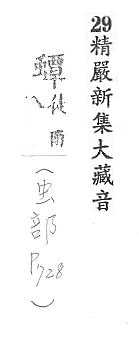 29精嚴新集大藏音
蟫 徒 南
（虫部
P728）